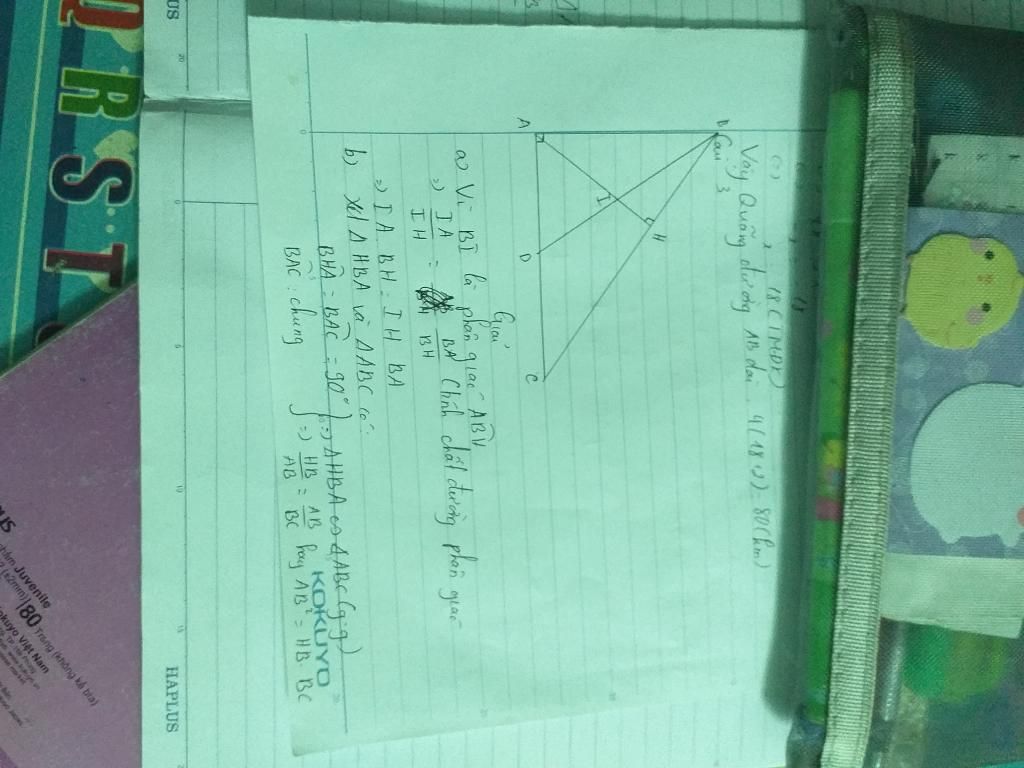 Vậy Quãng đường AB dài 4(18+2)=80(km)
Câu 3
B
A
I
H
D
C
Giải
a) Vì BI là phân giác
=> IA/IH = BA/BH (tính chất đường phân giác
=> IA BH = IH BA
b) Xét Δ HBA và Δ ABC có:
BHA = BAC = 90° => Δ HBA ∽ Δ ABC (g-g)
BAC: chung => HB/AB = AB/BC hay AB² = HB. BC
KOKUYO
HAPLUS
Juvenile
180 Trang (không kể bìa)
Kokuyo Việt Nam
QRST